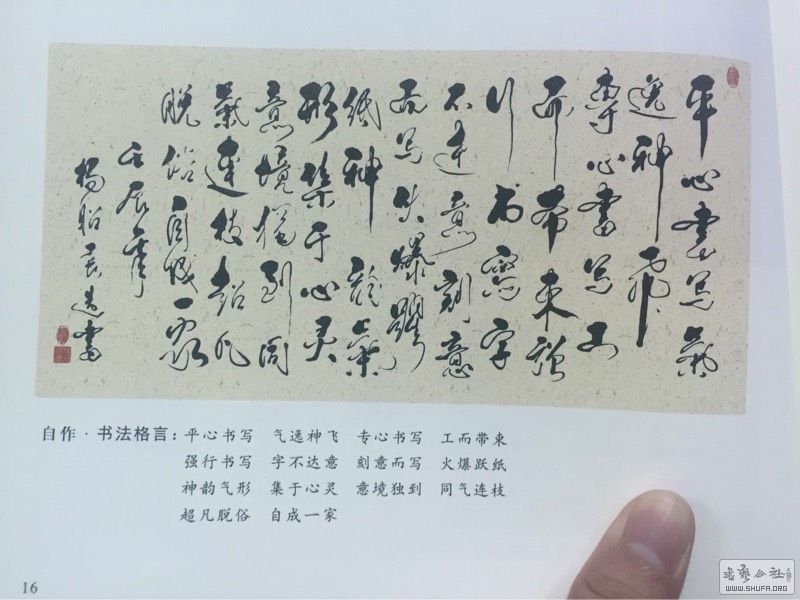 平心書写氣
逸神飛
專心書写工
而带束强
行书寫字
不达意刻意
而写火爆躍
纸神韵氣
形集于心灵
意境独到同
氣连枝超凡
脱俗自成一家
壬辰年
書
自作·书法格言：平心书写 气逸神飞 专心书写 工而带束
强行书写 字不达意 刻意而写 火爆跃纸
神韵气形 集于心灵 意境独到 同气连枝
超凡脱俗 自成一家
16
WWW.SHUFA.ORG